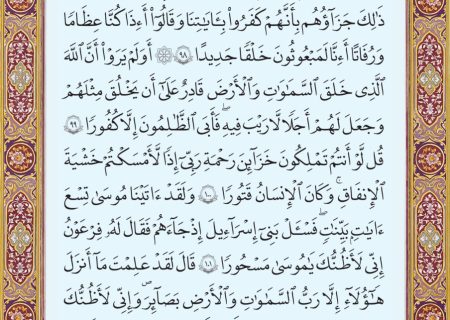 ذَٰلِكَ جَزَآؤُهُم بِأَنَّهُمْ كَفَرُوا۟ بِـَٔايَـٰتِنَا وَقَالُوٓا۟ أَءِذَا كُنَّا عِظَـٰمًا
وَرُفَـٰتًا أَءِنَّا لَمَبْعُوثُونَ خَلْقًا جَدِيدًا ۝٩٨ ۞ أَوَلَمْ يَرَوْا۟ أَنَّ ٱللَّهَ
ٱلَّذِى خَلَقَ ٱلسَّمَـٰوَٰتِ وَٱلْأَرْضَ قَادِرٌ عَلَىٰٓ أَن يَخْلُقَ مِثْلَهُمْ
وَجَعَلَ لَهُمْ أَجَلًا لَّا رَيْبَ فِيهِ فَأَبَى ٱلظَّـٰلِمُونَ إِلَّا كُفُورًا ۝٩٩
قُل لَّوْ أَنتُمْ تَمْلِكُونَ خَزَآئِنَ رَحْمَةِ رَبِّىٓ إِذًا لَّأَمْسَكْتُمْ خَشْيَةَ
ٱلْإِنفَاقِ ۚ وَكَانَ ٱلْإِنسَـٰنُ قَتُورًا ۝١٠٠ وَلَقَدْ ءَاتَيْنَا مُوسَىٰ تِسْعَ
ءَايَـٰتٍۭ بَيِّنَـٰتٍ ۖ فَسْـَٔلْ بَنِىٓ إِسْرَٰٓءِيلَ إِذْ جَآءَهُمْ فَقَالَ لَهُۥ فِرْعَوْنُ
إِنِّى لَأَظُنُّكَ يَـٰمُوسَىٰ مَسْحُورًا ۝١٠١ قَالَ لَقَدْ عَلِمْتَ مَآ أَنزَلَ
هَـٰٓؤُلَآءِ إِلَّا رَبُّ ٱلسَّمَـٰوَٰتِ وَٱلْأَرْضِ بَصَآئِرَ وَإِنِّى لَأَظُنُّكَ